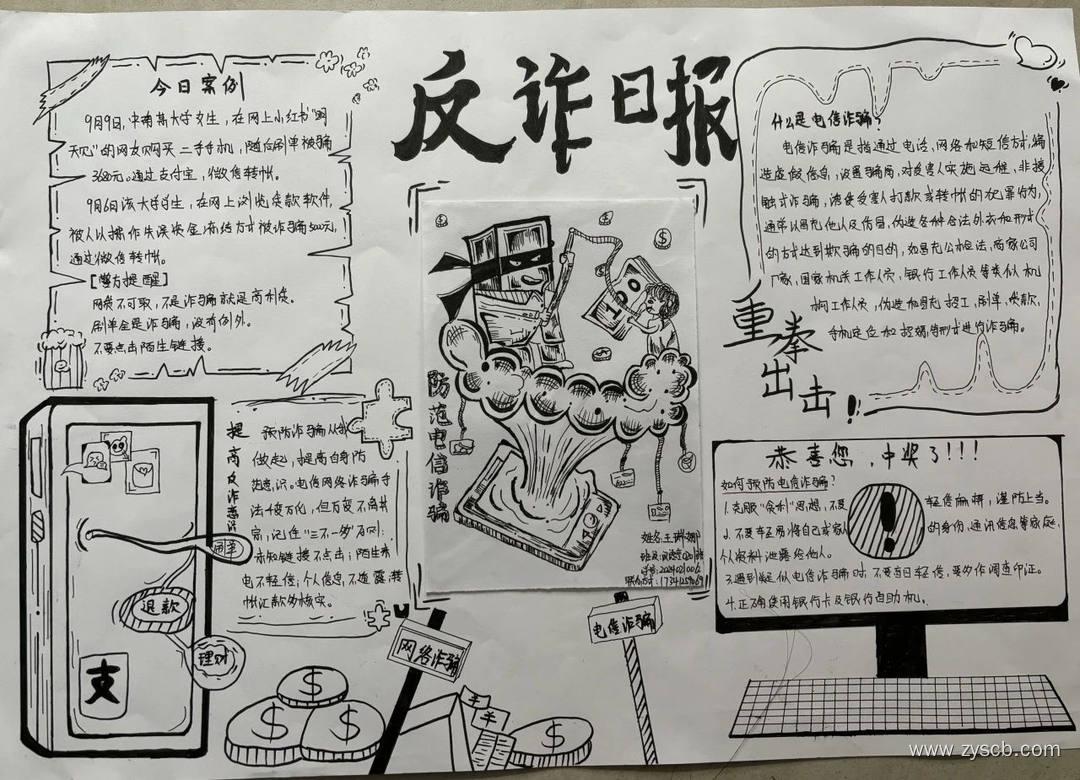 反诈日报
今日案例
9月9日,中南某大学女生,在网上小红书"
的网友购买二手手机,随后刷单被骗
3680元。通过支付宝,微信转帐。
9月6日该大学学生,在网上浏览贷款软件,
被人以操作失误资金冻结方式被诈骗5000元,
通过微信转帐。
[警方提醒]
网贷不可取,不是诈骗就是高利贷。
刷单全是诈骗,没有例外。
不要点击陌生链接。
什么是电信诈骗?
电信诈骗是指通过电话,网络和短信方式,编
造虚假信息,设置骗局,对受害人实施远程、非接
触式诈骗,诱使受害人打款或转帐的犯罪行为,
通常以冒充他人及仿冒,伪造各种合法外衣和形式
的方式达到欺骗的目的,如冒充公检法,商家公司
厂家,国家机关工作人员,银行工作人员等类似机
构工作人员,伪造和冒充招工,刷单,贷款,
手机定位和招嫖等形式进行诈骗。
重拳
出击!
防范电信诈骗
提高反诈意识
预防诈骗从我
做起,提高自身防
范意识,电信网络诈骗手
法千变万化,但万变不离其
宗,记住"三不一多"原则:
未知链接不点击;陌生来
电不轻信;个人信息不透露;转
帐汇款多核实。
刷单
退款
理财
支
网络诈骗
电信诈骗
恭喜您,中奖了!!!
如何预防电信诈骗?
1.克服"贪利"思想,不要轻信麻痹,谨防上当。
2.不要轻易将自己或家人的身份、通讯信息等家庭、
个人资料泄露给他人。
3.遇到疑似电信诈骗时,不要盲目轻信,要多作调查印证。
4.正确使用银行卡及银行自助机。
www.zyscb.com